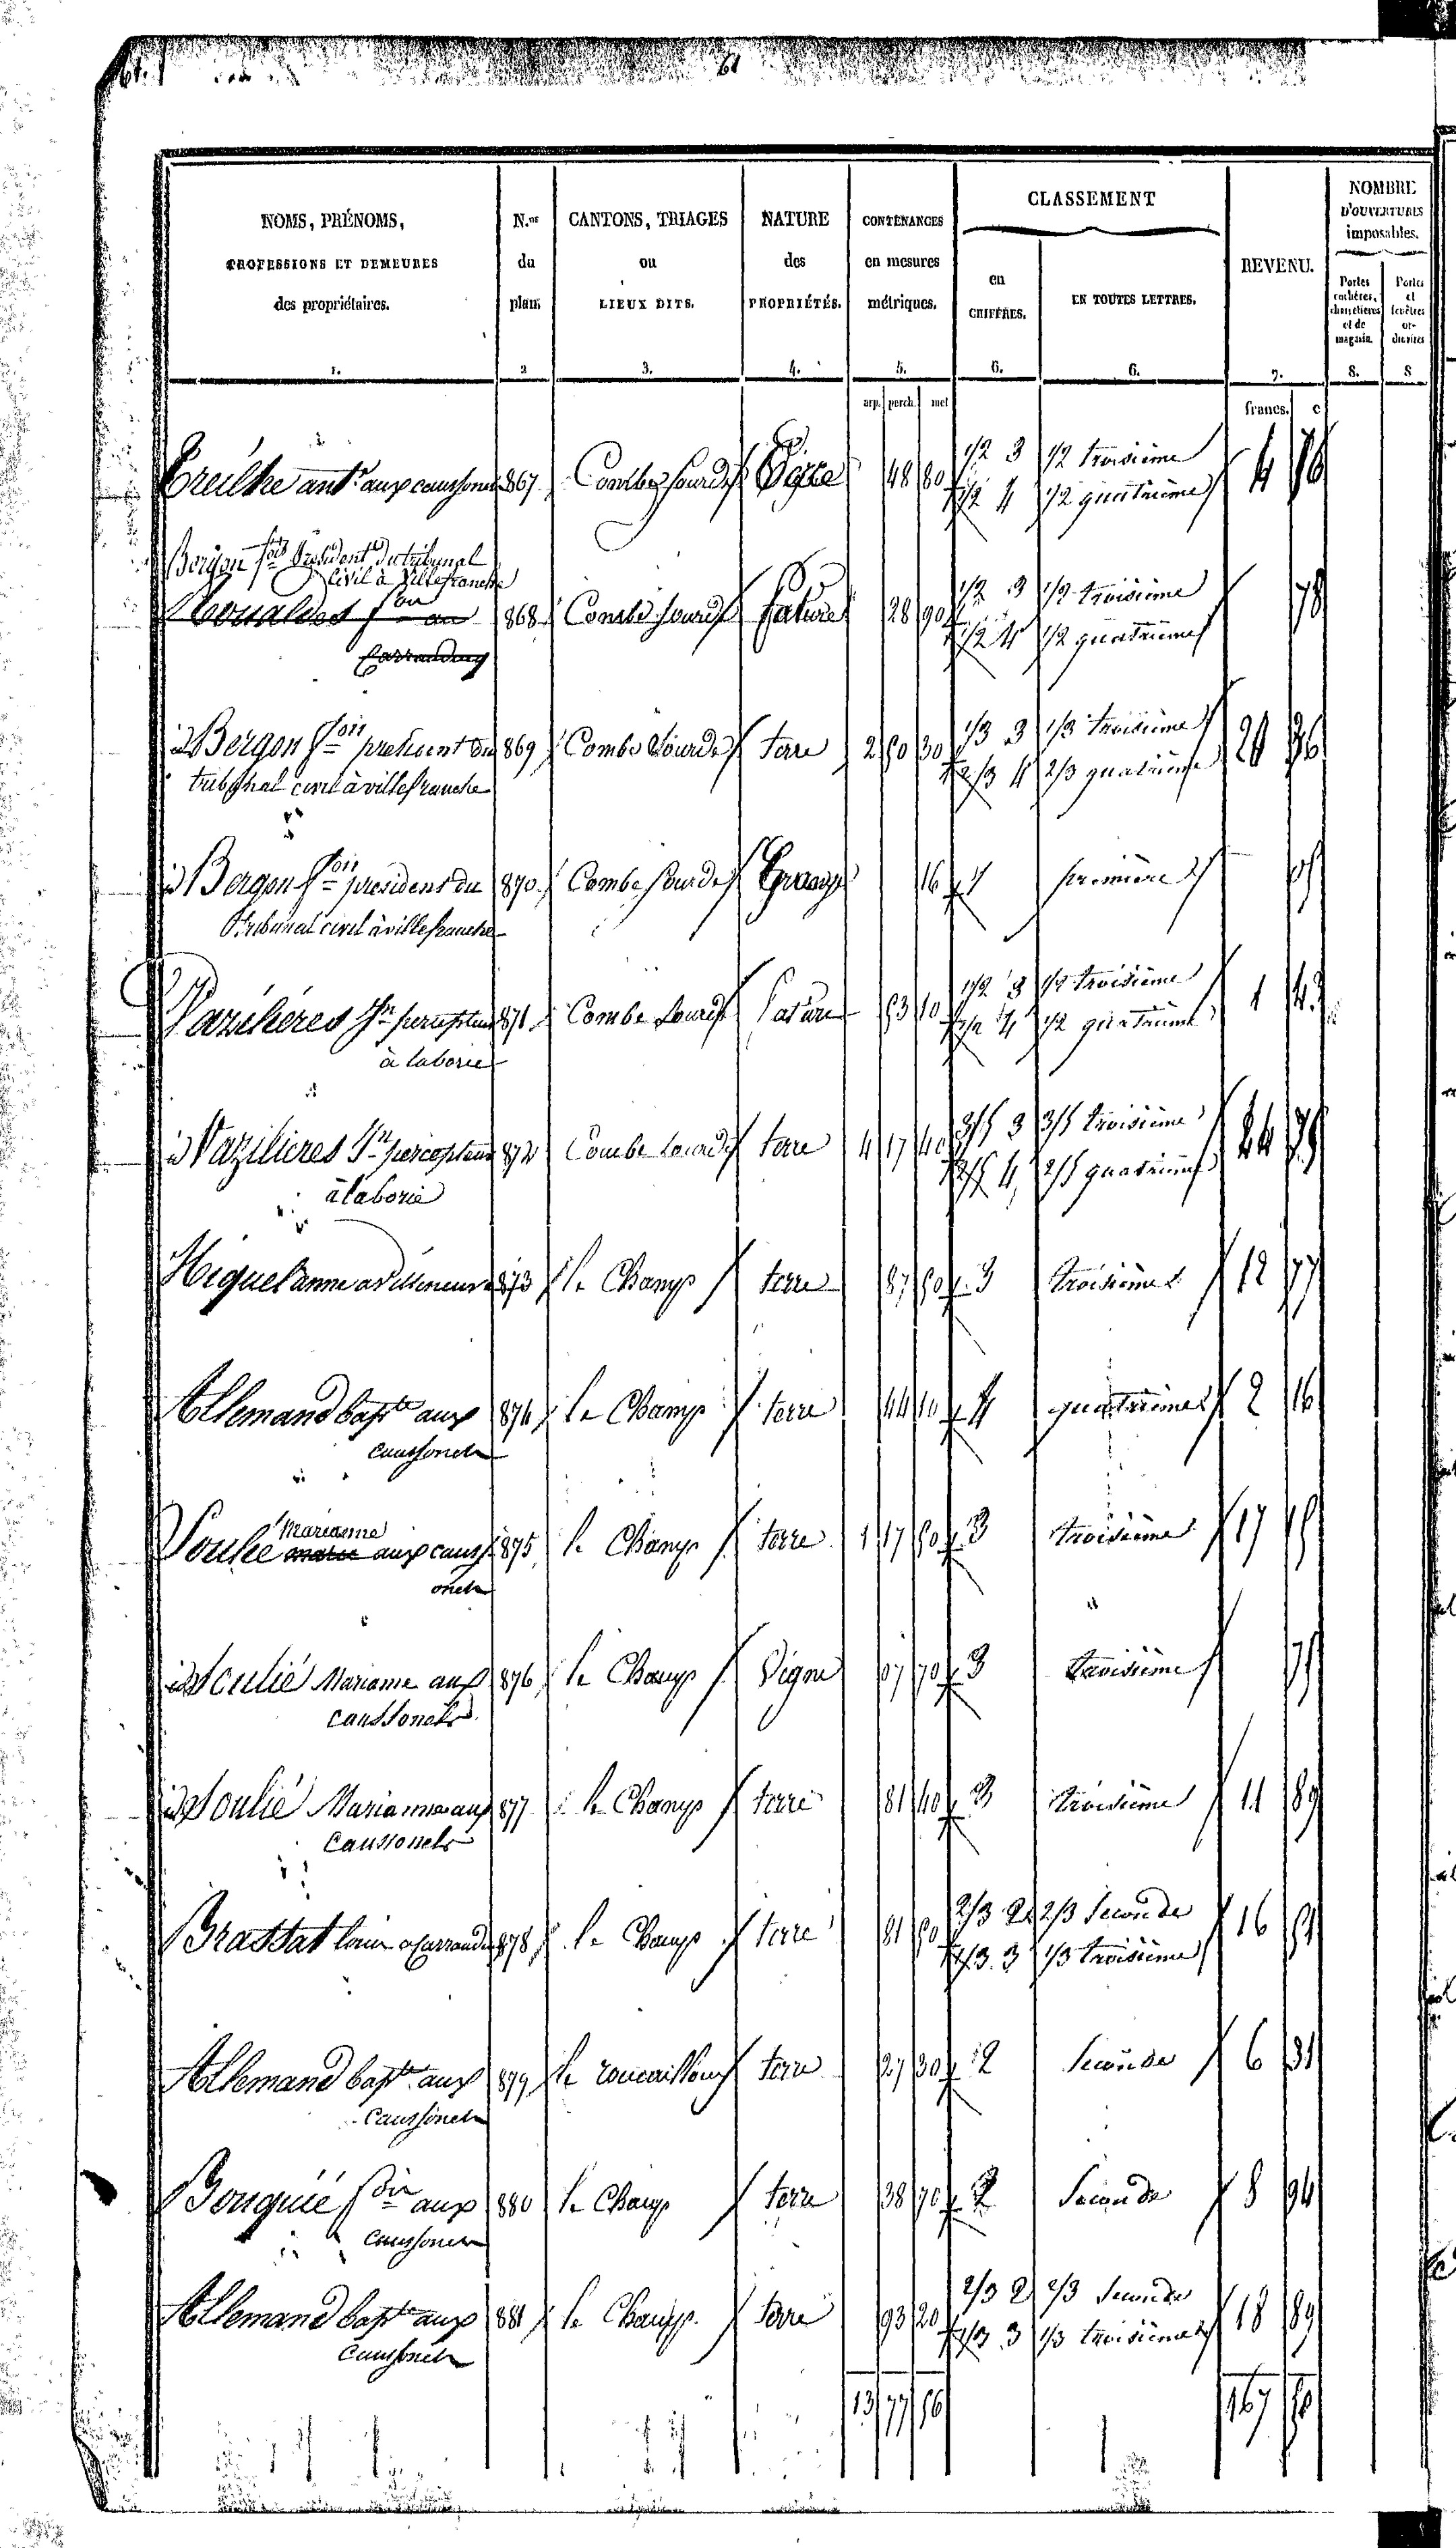 61
NOMS, PRÉNOMS, PROFESSIONS ET DEMEURES des propriétaires. N.os du plan. CANTONS, TRIAGES ou LIEUX DITS. NATURE des PROPRIÉTÉS. CONTENANCES en mesures métriques. CLASSEMENT en CHIFFRES. EN TOUTES LETTRES. REVENU. NOMBRE D'OUVERTURES imposables.
Portes cochères, charretières et de magasin. Portes et fenêtres ordinaires
1. 2 3. 4. 5. 6. 6. 7. 8. 8
arp. perch. met francs. c
1/2 3 1/2 troisième
Treilhe ant.e aux caussonels 867 Combe sourde Vigne 48 80 1/2 4 1/2 quatrième 4 76
Bergon f.ois Président du tribunal
Civil à Villefranche
1/2 3 1/2 troisième
868 Combe sourde Pature 28 90 1/2 4 1/2 quatrième 78
1/3 3 1/3 troisième
Bergon f.ois président du 869 Combe sourde terre 2 50 30 2/3 4 2/3 quatrième 20 36
tribunal civil à villefranche
Bergon f.ois président du 870 Combe sourde Grange 16 1 première
Tribunal civil à villefranche
1/2 3 1/2 troisième
percepteur 871 Combe sourde Pature 53 10 1/2 4 1/2 quatrième 1 43
à laborie
3/5 3 3/5 troisième
Vazilières percepteur 872 Combe sourde terre 4 17 40 2/5 4 2/5 quatrième
à laborie
Miquel anne a villeneuve 873 le Champ terre 87 50 3 troisième 12 77
Allemand bapt.te aux 874 le Champ terre 44 10 4 quatrième 2 16
caussonels
Marianne
Soulié marie aux causs 875 le Champ terre 1 17 50 3 troisième 17 15
onels
id Soulié Marianne aux 876 le Champ Vigne 07 70 3 troisième
caussonels
id Soulié Marianne aux 877 le Champ terre 81 40 3 troisième 11 89
Caussonels
2/3 2 2/3 seconde
Brassat 878 le Champ terre 81 50 1/3 3 1/3 troisième 16
Allemand bapt.te aux 879 terre 27 30 2 seconde 6 31
Caussonels
Bouquié f.ois aux 880 le Champ terre 38 70 2 Seconde 8 94
Caussonels
2/3 2 2/3 seconde
Allemand bapt.te aux 881 le Champ terre 93 20 1/3 3 1/3 troisième 18 89
Caussonels
13 77 56 167 50